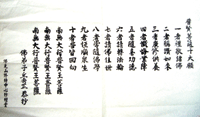 普賢菩薩十大願
一者禮敬諸佛
二者稱讚如來
三者廣修供養
四者懺悔業障
五者隨喜功德
六者請轉法輪
七者請佛住世
八者常隨佛學
九者恆順眾生
十者普皆回向
南無大行普賢王菩薩
南無大行普賢王菩薩
南無大行普賢王菩薩